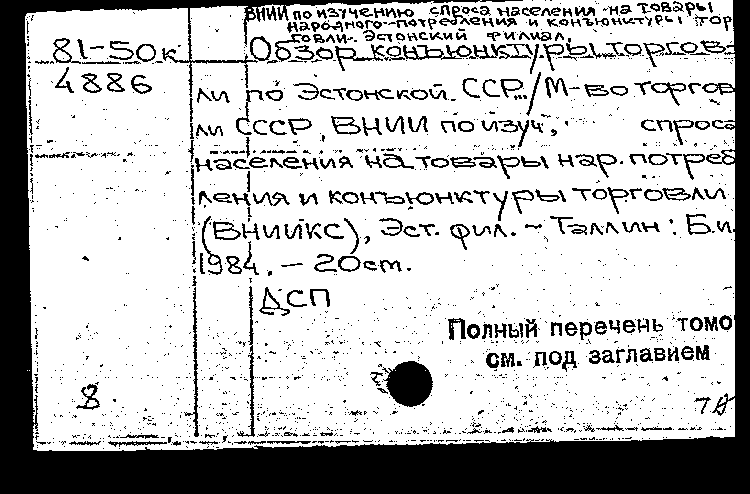 ВНИИ по изучению спроса населения на товары
народного потребления и конъюнктуры тор
говли. Эстонский филиал.
81-50к Обзор конъюнктуры торгов-
4886
ли по Эстонской ССР / М-во торгов
ли СССР, ВНИИ по изуч, спроса
населения на товары нар. потреб
ления и конъюнктуры торговли
(ВНИИКС), Эст. фил. – Таллин: Б.и.
1984. – 20 см.
ДСП
Полный перечень томо
см. под заглавием
8